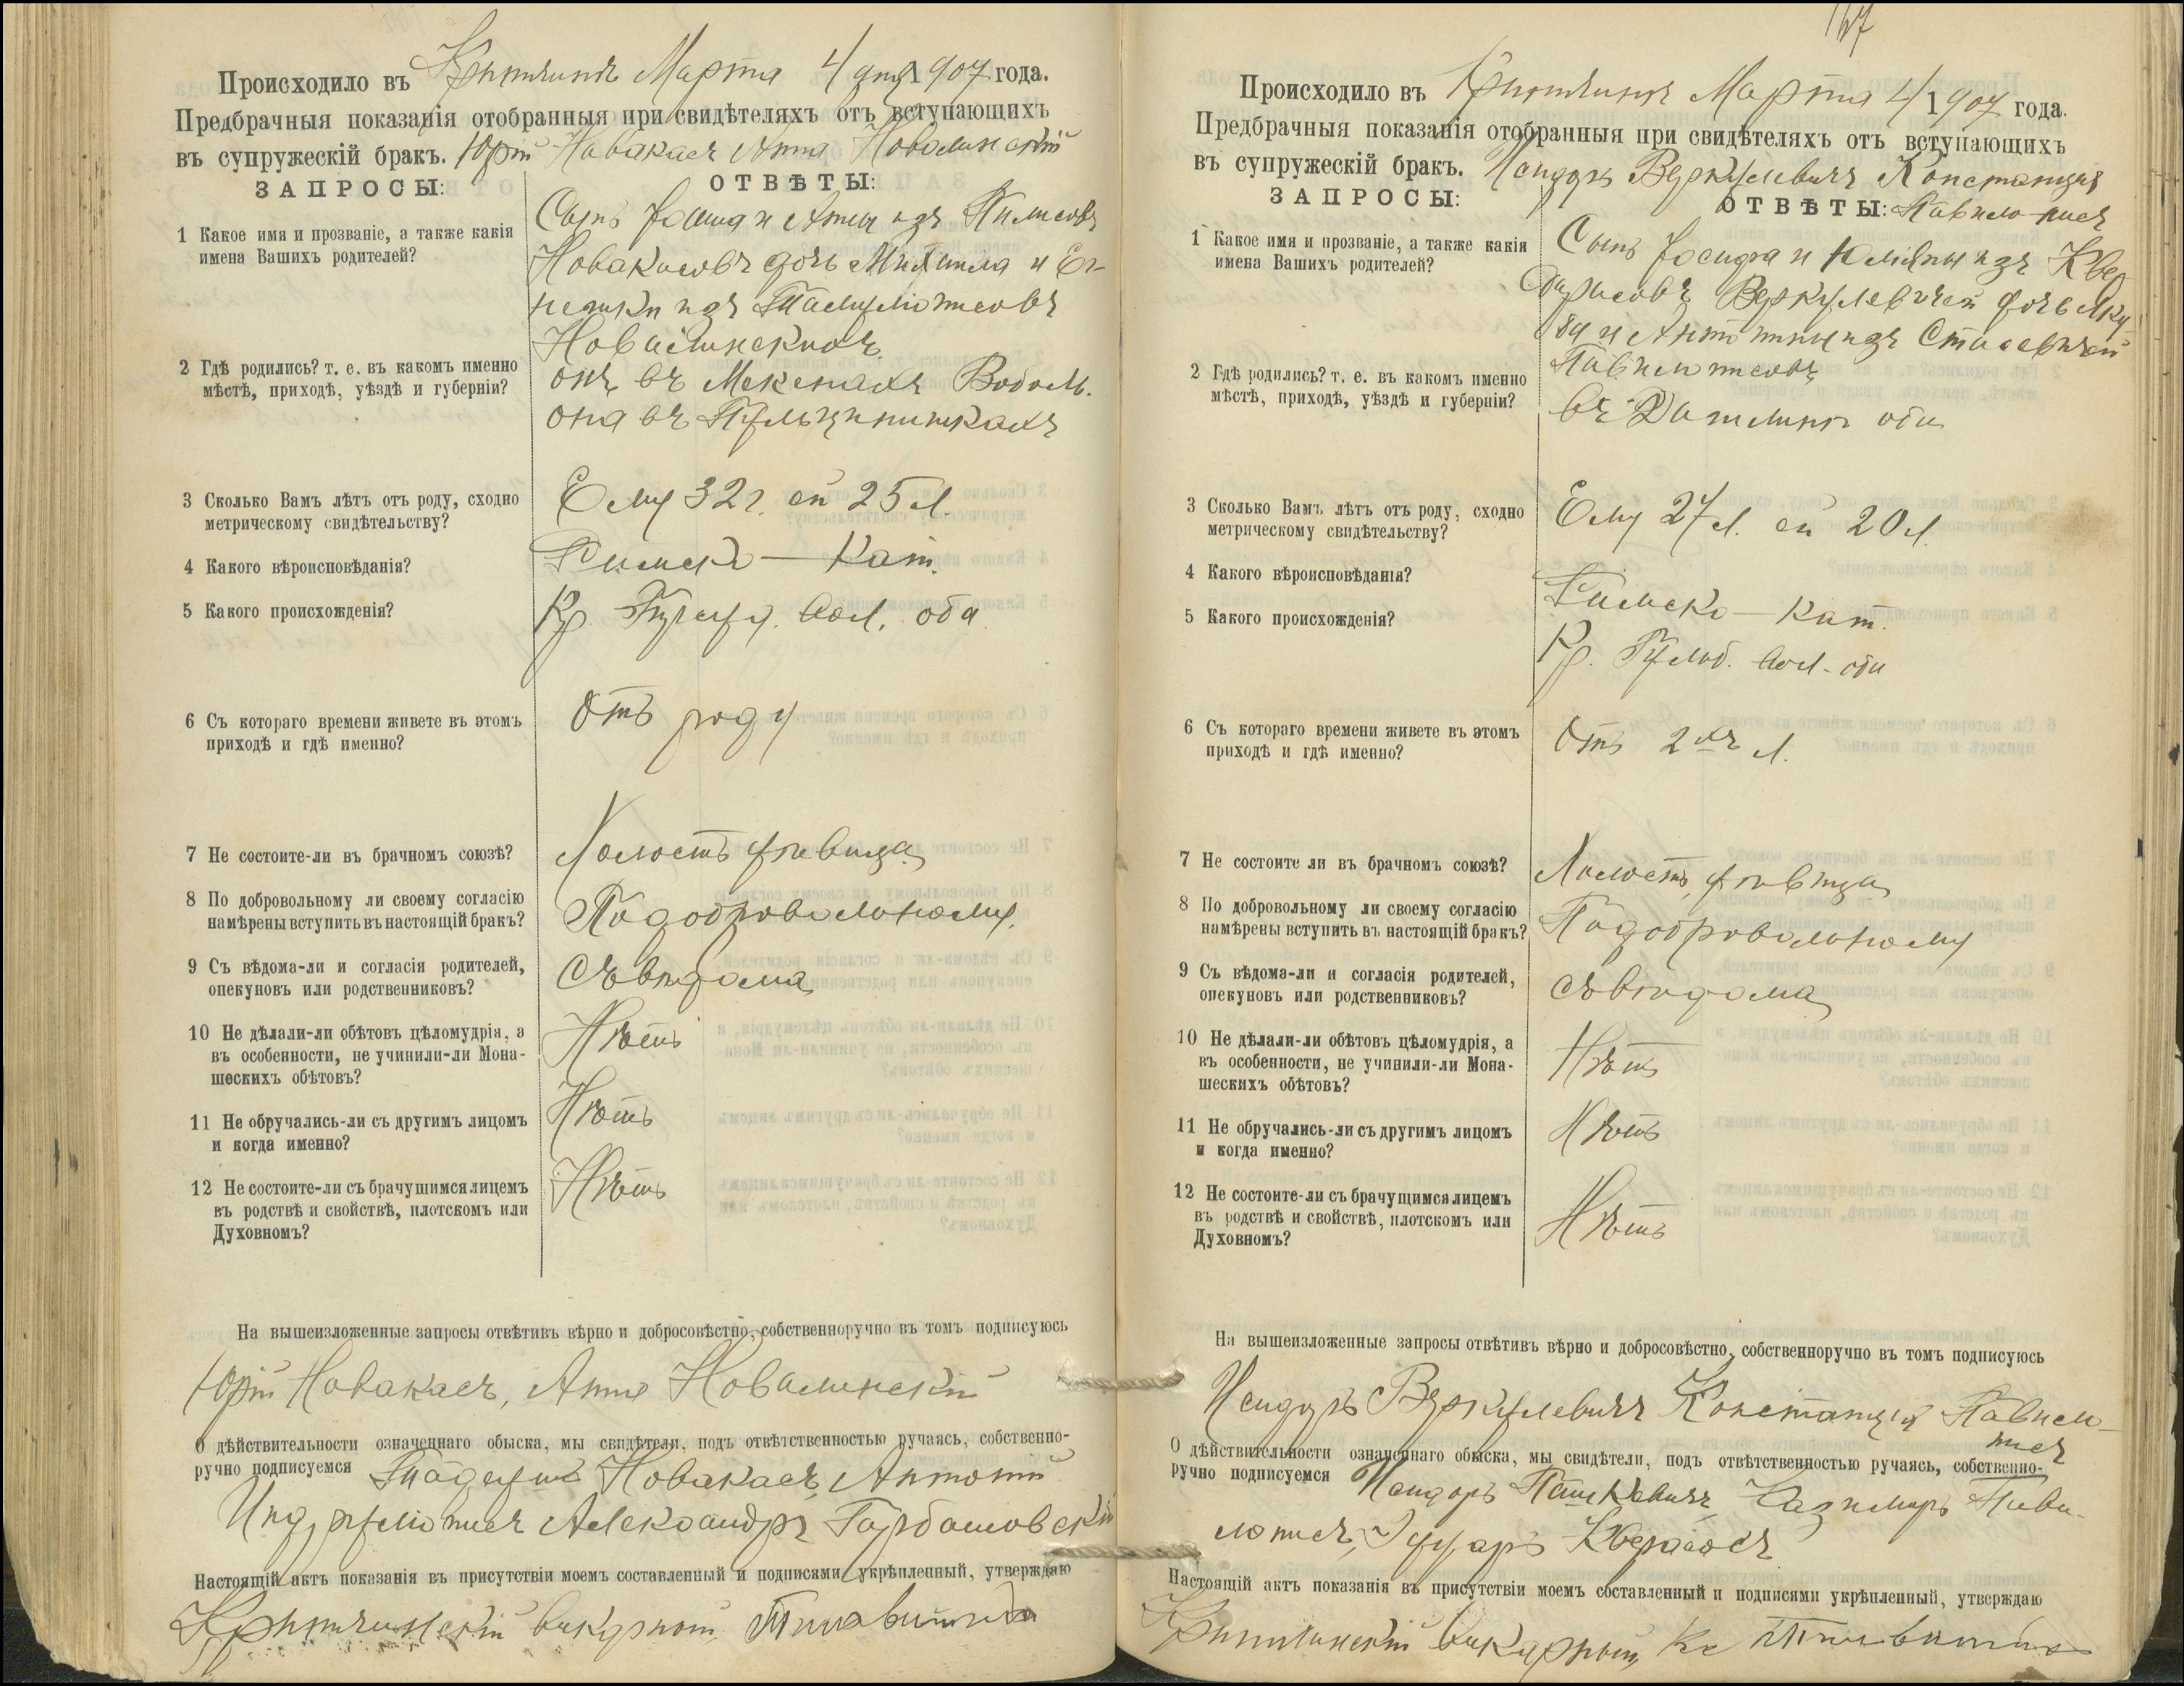 Происходило въ Криннчинѣ Марта 4 дня 1907 года.
Предбрачныя показанія отобранныя при свидѣтеляхъ отъ вступающихъ
въ супружескій бракъ. Юрій Новакасъ Анна
ЗАПРОСЫ: ОТВѢТЫ:
1 Какое имя и прозваніе, а также какія
имена Вашихъ родителей?
Сынъ и Анны изъ
Новакасовъ дочь Михаила и
изъ
2 Гдѣ родились? т. е. въ какомъ именно
мѣстѣ, приходѣ, уѣздѣ и губерніи?
онъ въ
она въ
3 Сколько Вамъ лѣтъ отъ роду, сходно
метрическому свидѣтельству?
Ему 32 г. ей 25 л.
4 Какого вѣроисповѣданія?
Римско-Кат.
5 Какого происхожденія?
Кр. вол. оба
6 Съ котораго времени живете въ этомъ
приходѣ и гдѣ именно?
Отъ роду
7 Не состоите-ли въ брачномъ союзѣ?
Холостъ дѣвица
8 По добровольному ли своему согласію
намѣрены вступить въ настоящій бракъ?
По добровольному.
9 Съ вѣдома-ли и согласія родителей,
опекуновъ или родственниковъ?
Съ вѣдома
10 Не дѣлали-ли обѣтовъ цѣломудрія, а
въ особенности, не учинили-ли Мона-
шескихъ обѣтовъ?
Нѣтъ
11 Не обручались-ли съ другимъ лицомъ
и когда именно?
Нѣтъ
12 Не состоите-ли съ брачущимся лицемъ
въ родствѣ и свойствѣ, плотскомъ или
Духовномъ?
Нѣтъ
На вышеизложенные запросы отвѣтивъ вѣрно и добросовѣстно, собственноручно въ томъ подписуюсь
Юрій Новакасъ, Анна
О дѣйствительности означеннаго обыска, мы свидѣтели, подъ отвѣтственностью ручаясь, собственно-
ручно подписуемся Новакасъ, Антоній
Александръ
Настоящій актъ показанія въ присутствіи моемъ составленный и подписями укрѣпленный, утверждаю
викарный
167
Происходило въ Марта 4 1907 года.
Предбрачныя показанія отобранныя при свидѣтеляхъ отъ вступающихъ
въ супружескій бракъ. Исидоръ Веркулевичъ Констанція
ЗАПРОСЫ: ОТВѢТЫ:
1 Какое имя и прозваніе, а также какія
имена Вашихъ родителей?
Сынъ Іосифа и Юліяны изъ
Веркулевичей дочь Яку-
ба и изъ
2 Гдѣ родились? т. е. въ какомъ именно
мѣстѣ, приходѣ, уѣздѣ и губерніи?
въ оба
3 Сколько Вамъ лѣтъ отъ роду, сходно
метрическому свидѣтельству?
Ему 27 л. ей 20 л.
4 Какого вѣроисповѣданія?
Римско-Кат.
5 Какого происхожденія?
Кр. вол. оба
6 Съ котораго времени живете въ этомъ
приходѣ и гдѣ именно?
Отъ 2хъ л.
7 Не состоите ли въ брачномъ союзѣ?
Холостъ, дѣвица
8 По добровольному ли своему согласію
намѣрены вступить въ настоящій бракъ?
По добровольному
9 Съ вѣдома-ли и согласія родителей,
опекуновъ или родственниковъ?
Съ вѣдома
10 Не дѣлали-ли обѣтовъ цѣломудрія, а
въ особенности, не учинили-ли Мона-
шескихъ обѣтовъ?
Нѣтъ
11 Не обручались-ли съ другимъ лицомъ
и когда именно?
Нѣтъ
12 Не состоите-ли съ брачущимся лицемъ
въ родствѣ и свойствѣ, плотскомъ или
Духовномъ?
Нѣтъ
На вышеизложенные запросы отвѣтивъ вѣрно и добросовѣстно, собственноручно въ томъ подписуюсь
Исидоръ Веркулевичъ Констанція
О дѣйствительности означеннаго обыска, мы свидѣтели, подъ отвѣтственностью ручаясь, собственно-
ручно подписуемся Исидоръ Казимиръ
Настоящій актъ показанія въ присутствіи моемъ составленный и подписями укрѣпленный, утверждаю
викарный